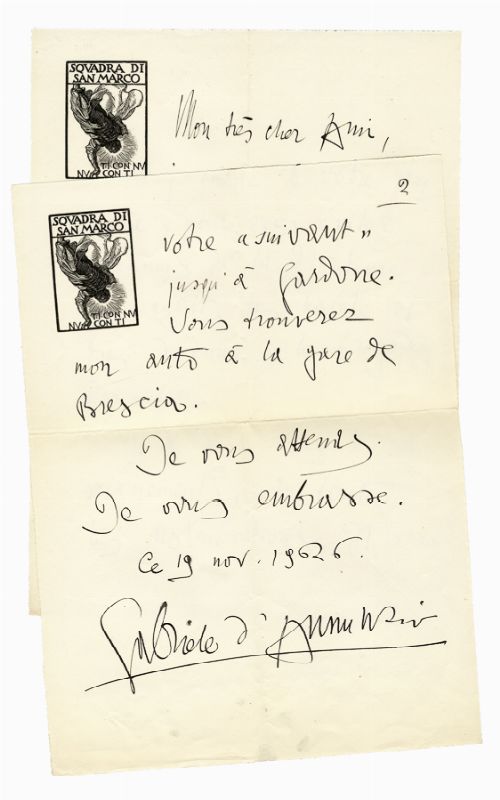 SQVADRA DI
SAN MARCO
TI CON NV
NV CON TI
Mon très cher Ami,
2
SQVADRA DI
SAN MARCO
TI CON NV
NV CON TI
votre "suivant"
jusqu'à Gardone.
Vous trouverez
mon auto à la gare de
Brescia.
Je vous attends.
Je vous embrasse.
Ce 19 nov. 1926.
Gabriele d'Annunzio